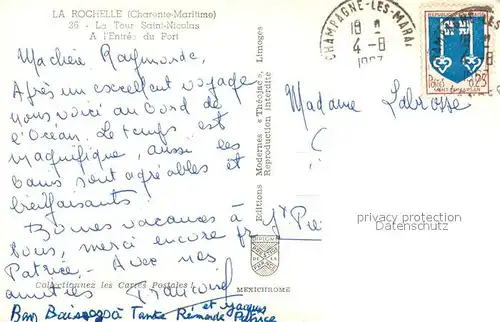 LA ROCHELLE (Charente-Maritime)
26 - La Tour Saint-Nicolas
A l'Entrée du Port
Ma chère Raymonde,
Après un excellent voyage
nous voici au bord de
l'Océan. Le temps est
magnifique, aussi les
bains sont agréables et
bienfaisants.
Bonnes vacances à
tous, merci encore
Patrice. Avec nos
amitiés
Collectionnez les Cartes Postales !
et Jacques
à Tante Patrice
Editions Modernes « Théojac », Limoges
Reproduction interdite
MEXICHROME
CHAMPAGNE-LES-MARAI
18
4-8
Postes
0,25
Madame Labrosse
privacy protection
Datenschutz